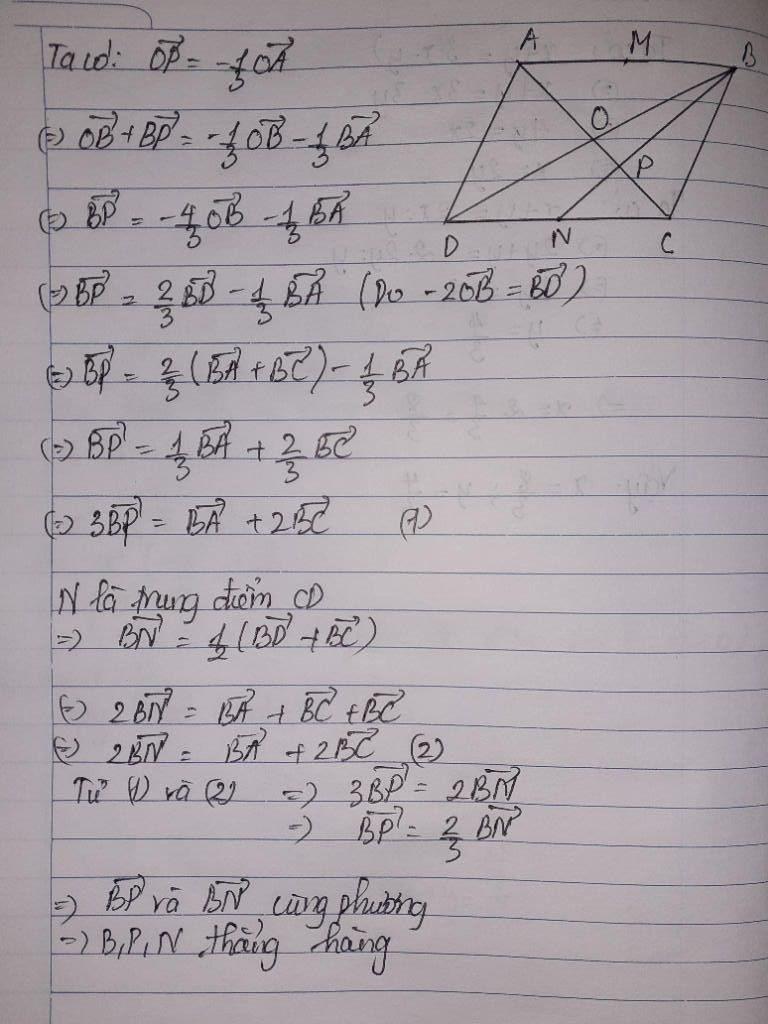 Ta có: OP⃗ = -1/3 OA⃗
(=) OB⃗ + BP⃗ = -1/3 OB⃗ - 1/3 BA⃗
(=) BP⃗ = -4/3 OB⃗ - 1/3 BA⃗
(=) BP⃗ = 2/3 BD⃗ - 1/3 BA⃗ (Do -2OB⃗ = BD⃗)
(=) BP⃗ = 2/3 (BA⃗ + BC⃗) - 1/3 BA⃗
(=) BP⃗ = 1/3 BA⃗ + 2/3 BC⃗
(=) 3BP⃗ = BA⃗ + 2BC⃗ (1)
N là trung điểm CD
=) BN⃗ = 1/2 (BD⃗ + BC⃗)
(=) 2BN⃗ = BA⃗ + BC⃗ + BC⃗
(=) 2BN⃗ = BA⃗ + 2BC⃗ (2)
Từ (1) và (2) =) 3BP⃗ = 2BN⃗
=) BP⃗ = 2/3 BN⃗
=) BP⃗ và BN⃗ cùng phương
=) B, P, N thẳng hàng
A M B
O
P
D N C